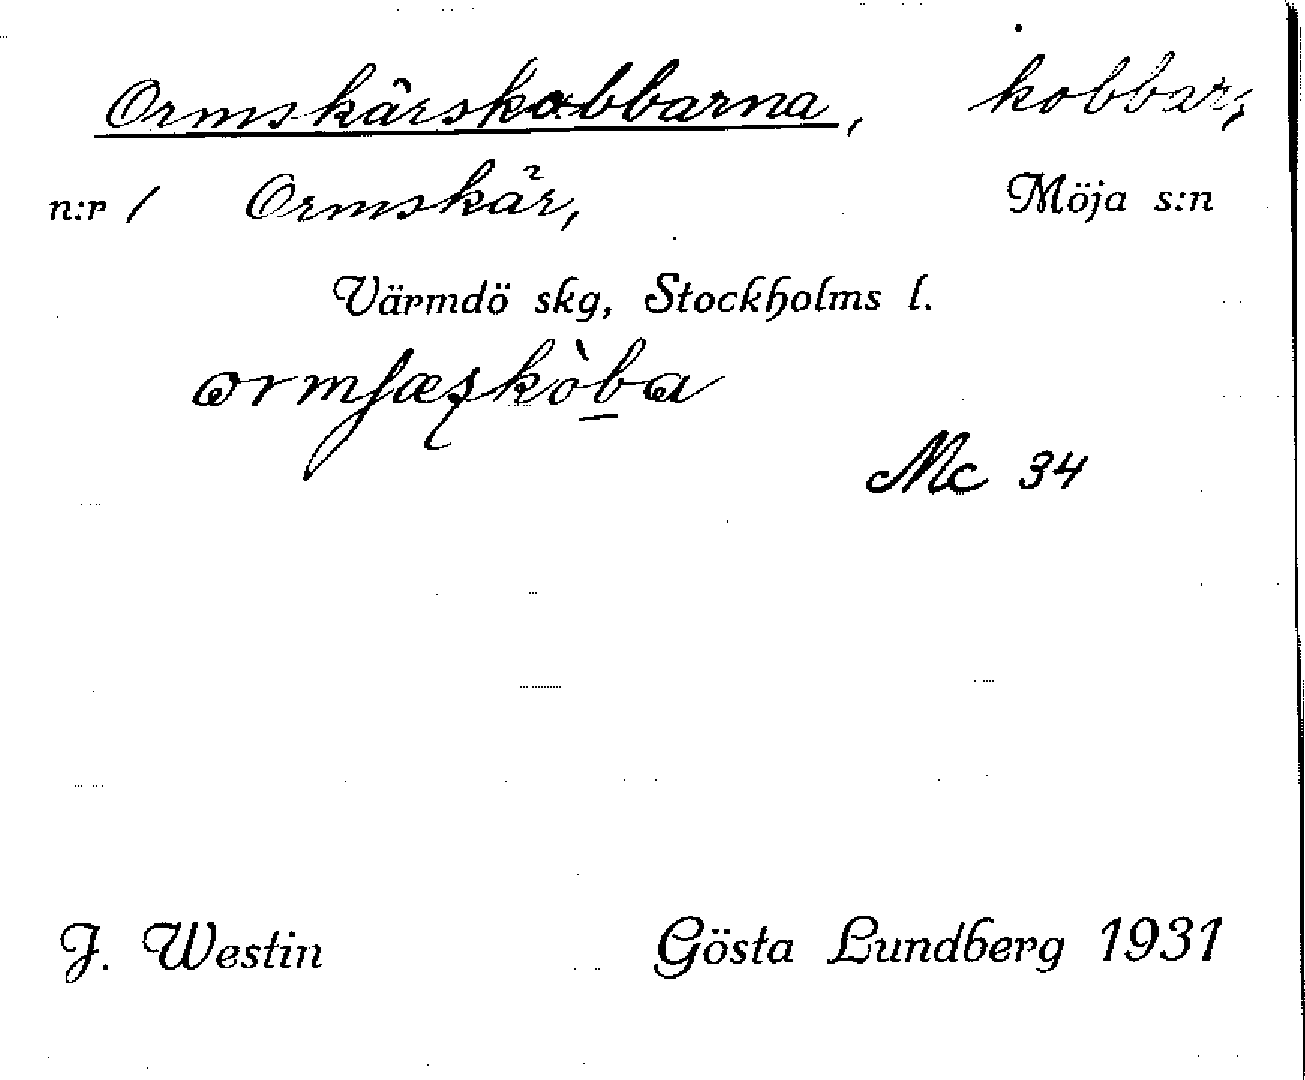 Ormskärskobbarna, kobbar,
n:r 1 Ormskär, Möja s:n
Värmdö skg, Stockholms l.
Mc 34
J. Westin Gösta Lundberg 1931